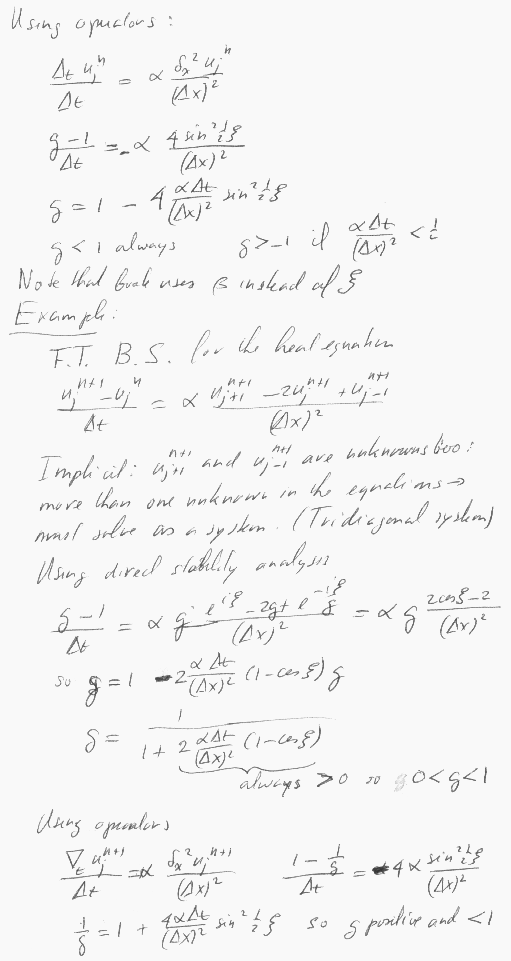 Using operators :
Δt uj^n / Δt = α δx² uj^n / (Δx)²
(g-1)/Δt = -α 4 sin² ½ξ / (Δx)²
g = 1 - 4 αΔt/(Δx)² sin² ½ξ
g < 1 always g > -1 if αΔt/(Δx)² < ½
Note that book uses β instead of ξ
Example:
F.T. B.S. for the heat equation
(uj^n+1 - uj^n)/Δt = α (uj+1^n+1 - 2uj^n+1 + uj-1^n+1)/(Δx)²
Implicit: uj+1^n+1 and uj-1^n+1 are unknowns too:
more than one unknown in the equations →
must solve as a system. (Tridiagonal system)
Using direct stability analysis
(g-1)/Δt = α (g e^iξ - 2g + e^-iξ g)/(Δx)² = α g (2cosξ-2)/(Δx)²
so g = 1 - 2 αΔt/(Δx)² (1-cosξ) g
g = 1 / (1 + 2 αΔt/(Δx)² (1-cosξ))
always > 0 so 0<g<1
Using operators
∇t uj^n+1 / Δt = α δx² uj^n+1 / (Δx)² (1 - 1/g)/Δt = -4α sin² ½ξ / (Δx)²
1/g = 1 + 4αΔt/(Δx)² sin² ½ ξ so g positive and <1